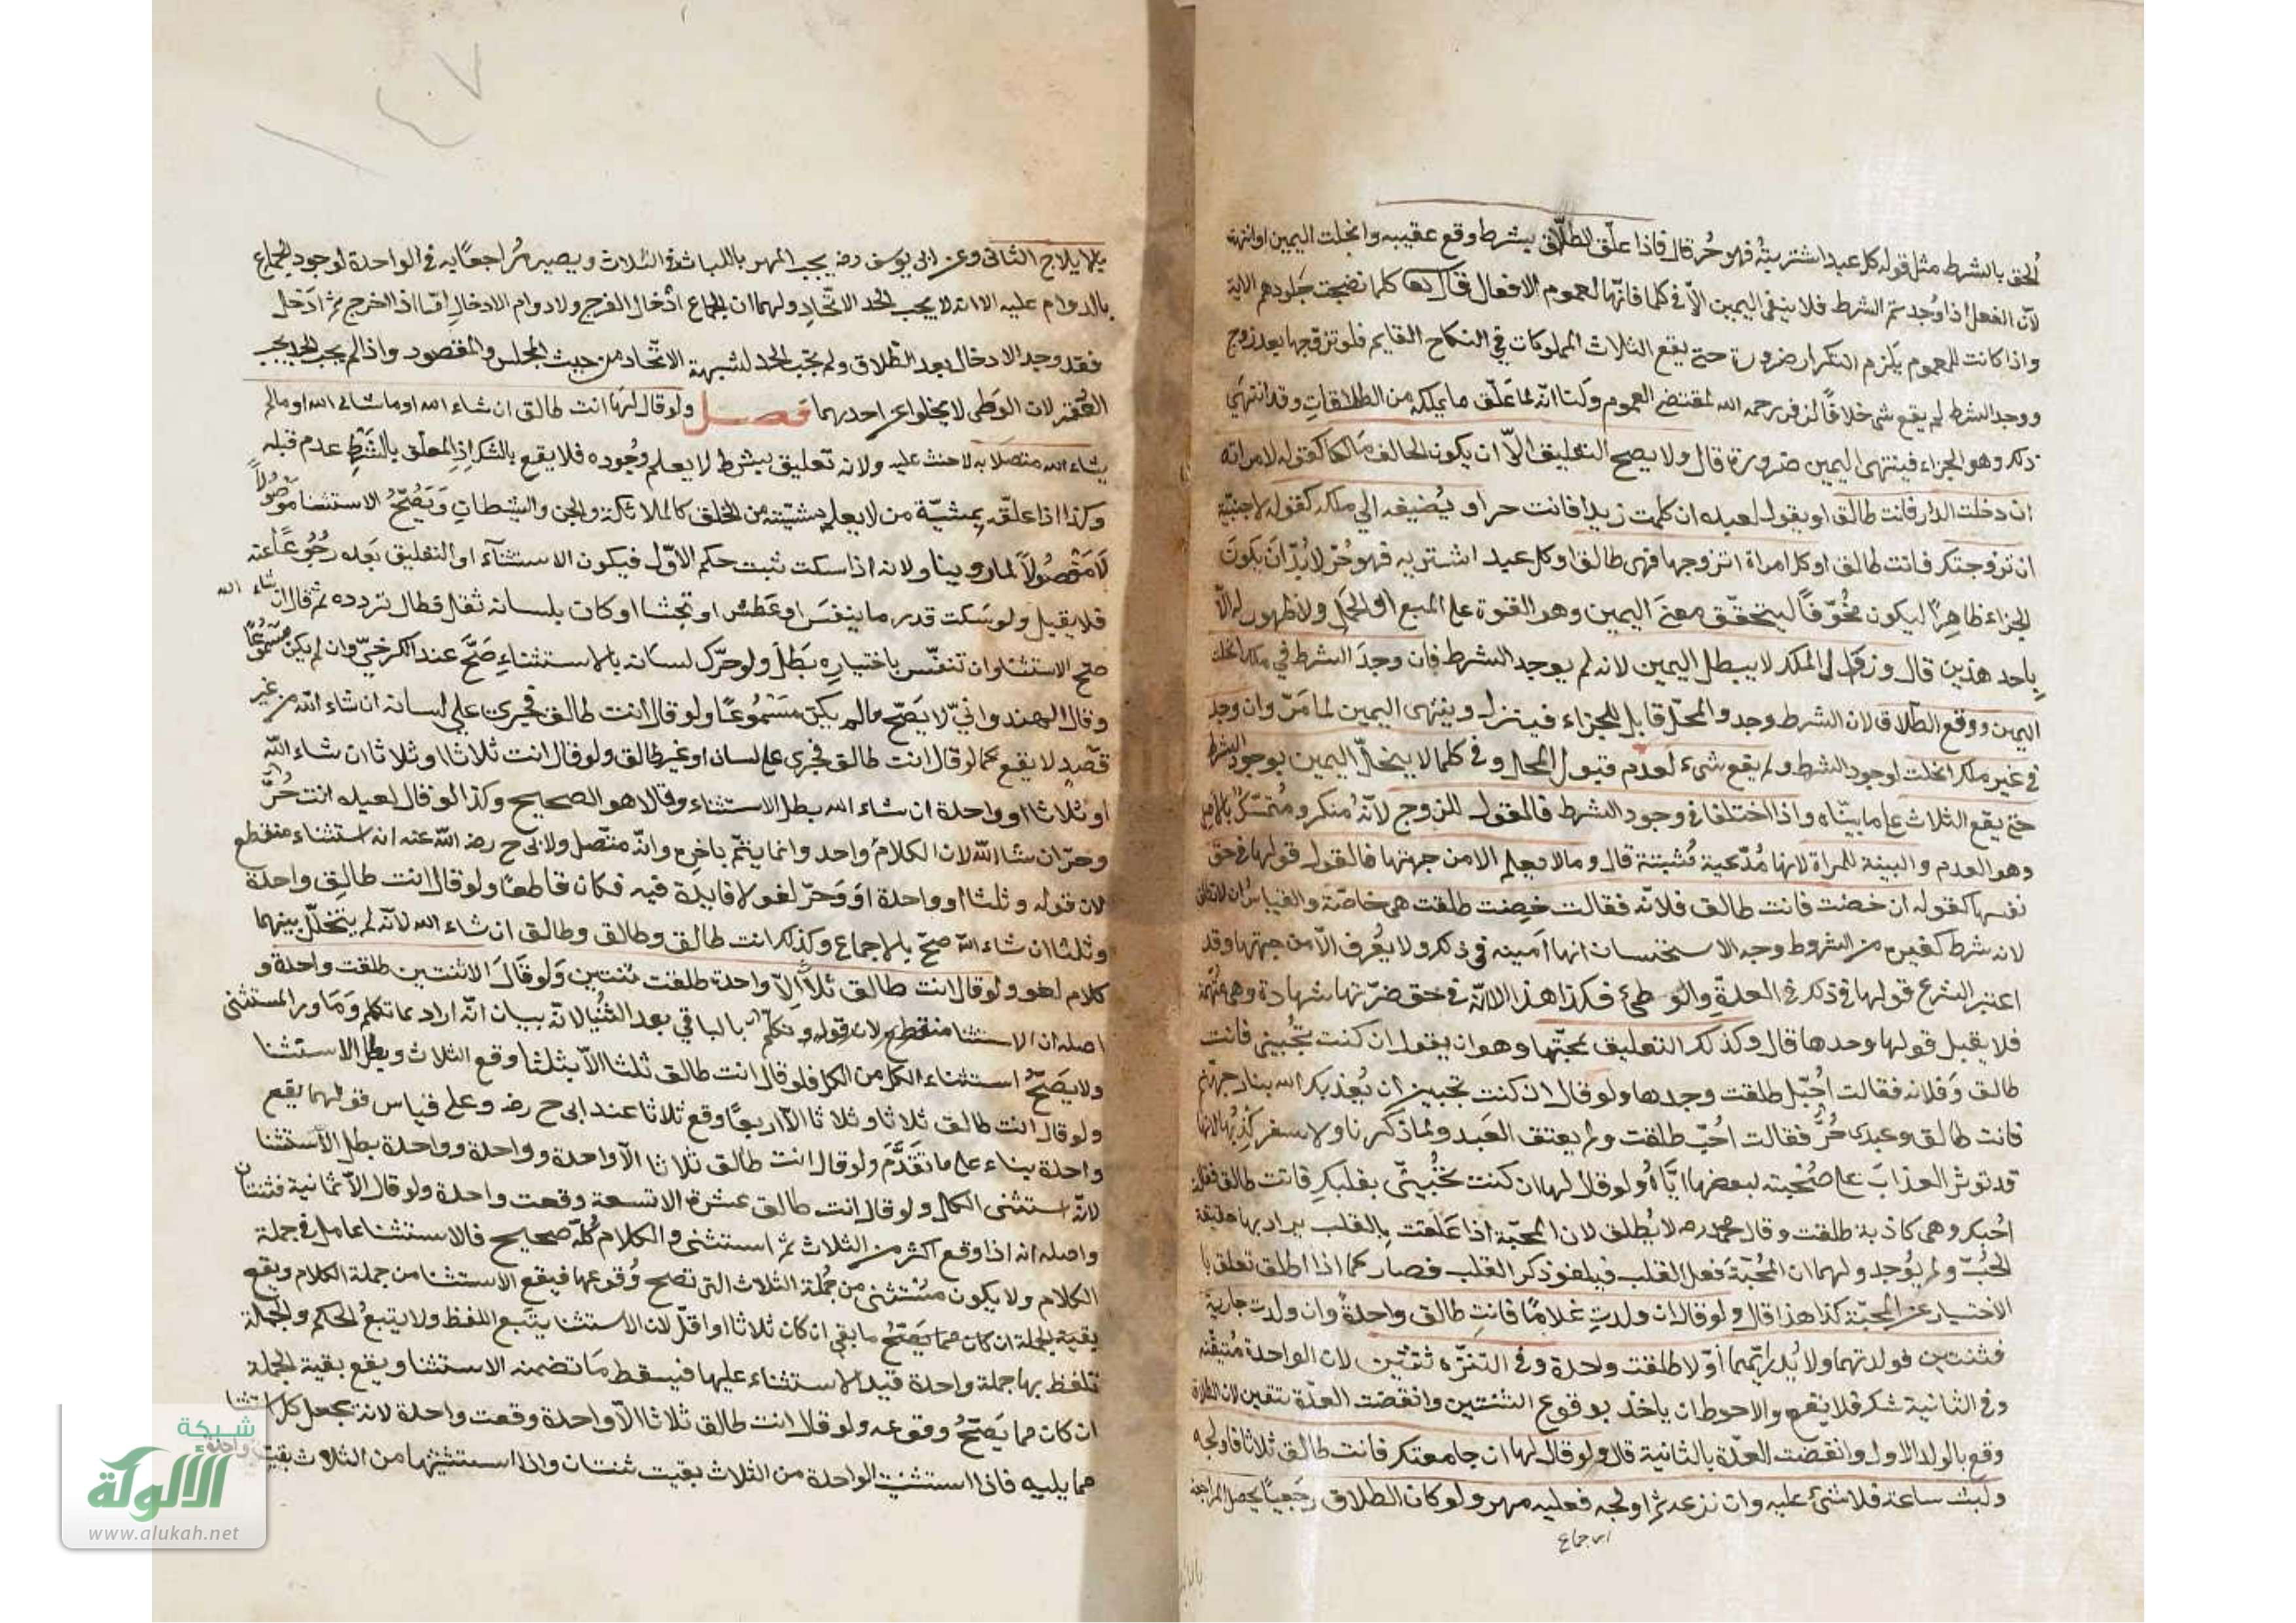 ألحق بالشرط مثل قوله كل عبد اشتريته فهو حُر قال فاذا علّق الطلاق بشرط وقع عقيبه وانحلت اليمين وانتهت
لانّ الفعل اذا وُجد تمّ الشرط فلا يبقى اليمين الاّ فى كلما فانّها لعموم الافعال قال الله كلما نضجت جلودهم الاية
واذا كانت للعموم يلزم التكرار ضرورة حتى يقع الثلاث المملوكات في النكاح القايم فلو تزوّجها بعد زوج
ووجد الشرط لم يقع شى خلافًا لزفر رحمه الله لمقتضى العموم ولنا انّه لما علّق ما يملكه من الطلقات وقد انتهى
ذلك وهو الجزاء فينتهى اليمين ضرورة قال ولا يصح التعليق الاّ ان يكون الحالف مالكا كقوله لامراته
ان دخلت الدار فانت طالق او يقول لعبده ان كلمت زيدا فانت حر او يُضيفه الي ملكه كقوله لاجنبيّة
ان تزوجتك فانت طالق او كل امراة اتزوجها فهى طالق او كل عبد اشتريه فهو حُرّ لا بُدّ ان يكون
الجزاء ظاهرًا ليكون مُخوّفًا ليتحقّق معنى اليمين وهو القوة على المنع او الحمل ولا ظهور له الاّ
باحد هذين قال وزوال الملك لا يبطل اليمين لانه لم يوجد الشرط فان وجد الشرط في ملكه انحلت
اليمين ووقع الطلاق لان الشرط وجد والمحلّ قابل للجزاء فينزل وينتهى اليمين لما مَرّ وان وجد
فى غير ملكه انحلت لوجود الشرط ولم يقع شىء لعدم قبول المحل وفى كلما لا ينحلّ اليمين بوجود الشرط
حتى يقع الثلاث على ما بيّناه واذا اختلفا فى وجود الشرط فالقول للزوج لانّه منكر ومُتمسّك بالاصل
وهو العدم والبينة للمراة لانها مُدّعية مُثبتة قال وما لا يعلم الا من جهتها فالقول قولها فى حق
نفسها كقوله ان حضت فانت طالق وفلانه فقالت حضت طلقت هى خاصّة والقياس ان لا تطلق
لانه شرط كغيره من الشروط وجه الاستحسان انها امينه فى ذلك ولا يُعرف الاّ من جهتها وقد
اعتبر الشرع قولها فى ذلك فى العدّة والوطئ فكذا هذا الا انّه فى حق ضرّتها شهادة وهى متّهمة
فلا يقبل قولها وحدها قال وكذلك التعليق بمحبّتها وهو ان يقول ان كنت تحُبيني فانت
طالق وفلانه فقالت احُبّك طلقت وحدها ولو قال ان كنت تحبين ان يُعذبك الله بنار جهنّم
فانت طالق وعبدى حُرٌّ فقالت احُبّ طلقت ولم يعتق العَبد ولما ذكرنا ولا يتيقن كذبُها لانها
قد تؤثر العذابَ على صُحبته لبعضها ايّاهُ ولو قال لها ان كنت تحُبّينّى بقلبكِ فانت طالق فقالت
احُبك وهى كاذبة طلقت وقال محمد رحمه لا يُطلق لان المحبّة اذا عَلّقت بالقلب يراد بها حقيقة
الحُبّ ولم يُوجد ولهما ان المُحبّة فعل القلب فيلغو ذكر القلب فصار كما اذا اطلق تعلق با
الاختيار عن المحبّة كذا هذا قال ولو قال ان ولدتِ غلامًا فانتِ طالق واحدةً وان ولدت جارية
فثنتين فولدتهما ولا يُدرا ايّهما أوّلا طلقت واحدة وفى التنزّه ثنتين لان الواحدة مُتيقّنه
وفى الثانية شك فلا يقع والاحوط ان ياخذ بوقوع الثنتين وانقضت العدّة بيقين لان الطلاق
وقع بالولد الاول وانقضت العدّة بالثانية قال ولو قال لها ان جامعتك فانت طالق ثلاثا فاولجه
ولبث ساعة فلا شئ عليه وان نزعه ثم اولجه فعليه مهر ولو كان الطلاق رجعيًا يحصل المراجعة
اى جماع
بالايلاج الثانى وعن ابى يوسف رضه يجب المهر باللباث فى الثلاث ويصير مُراجعًا به فى الواحدة لوجود الجماع
بالدوام عليه الا انه لا يجب الحد الاتّحاد ولهما ان الجماع ادخال الفرج ولا دوام الادخال امّا اذا اخرج ثم ادخل
فقد وجد الادخال بعد الطلاق ولم تجب الحد لشبهة الاتّحاد من حيث المجلس والمقصود واذا لم يجب الحد يجب
العُقر لان الوطى لا يخلوا عن احدهما فصل ولو قال لها انت طالق ان شاء الله او ما شا الله او مالم
يشاء الله متصلا به لا حنث عليه ولانه تعليق بشرط لا يعلم وجوده فلا يقع بالشك اذ المعلّق بالشّرط عدم قبله
وكذا اذا علّقه بمشيّة من لا يعلم مشيّته من الخلق كالملائكة والجن والشيطان ويَصُحّ الاستثنا موصُولاً
لا مفصُولاً لما روينا ولانه اذا سكت ثبت حكم الاوّل فيكون الاستثنآء او التعليق بَعده رجُوعًا عنه
فلا يقبل ولو سكت قدر ما يتنفس او عَطس او تجشا او كان بلسانه ثقل فطال تردده ثم قال ان شاء الله
صح الاستثنا وان تنفّس باختياره بَطلَ ولو حرّك لسانه بالاستثناءِ صَحّ عند الكرخيّ وان لم يكن مسمُوعًا
وقال الهندوانيّ لا يصَحّ مالم يكن مَسْمُوعًا ولو قال انت طالق فجرى علي لسانه ان شاء الله من غير
قصْدٍ لا يقع كما لو قال انت طالق فجرى على لسانه او غير طالق ولو قال انت ثلاثا او ثلاثا ان شاء الله
او ثلاثا او واحدة ان شاء الله بطل الاستثناء وقالا هو الصحيح وكذا لو قال لعبده انت حُرٌّ
وحرّ ان شا الله لان الكلامُ واحد وانما يتمّ باخره وانّه متّصل ولابى ح رضى الله عنه انه استثناء منقطع
لان قوله وثلثا او واحدة او وَحرّ لغو لا فايدة فيه فكان قاطعًا ولو قال انت طالق واحدة
وثلثا ان شاء الله صحّ بالاجماع وكذلك انت طالق وطالق وطالق ان شاء الله لانّه لم يتخلّل بينهما
كلام لغو ولو قال انت طالق ثلاثًا الاّ واحدة طلقت ثنتين وَلو قَالَ الا ثنتين طلقت واحدة و
اصله ان الاستثنا منقطع لان قوله وتكلّم بالباقي بعد الثُنيا لانّه بيان انّه اراد بما تكلم وَمَا ورا المستثنى
ولا يصَحّ استثناء الكل من الكل فلو قال انت طالق ثلثا الاّ بثلثا وقع الثلاث وبطل الاستثنا
ولو قال انت طالق ثلاثا وثلاثا الاّ اربعًا وقع ثلاثا عند ابى ح رضه وعلى قياس قولهما يقع
واحدة بناء على ما تقَدَّمَ ولو قال انت طالق ثلاثا الاّ واحدة وواحدة وواحدة بطل الاستثنا
لانّه استثنى الكل ولو قال انت طالق عشرة الا تسعة وقعت واحدة ولو قال الاّ ثمانية فثنتان
واصله انه اذا وقع اكثر من الثلاث ثم استثنى والكلام كُلّه صحيح فالاستثنا عامل فى جملة
الكلام ولا يكون مسْتثنى من جُملة الثلاث التى تصح وُقوعها فيقع الاستثنا من جملة الكلام ويقع
بقية الجملة ان كان مما يَصَحّ ما بقى ان كان ثلاثا او اقلّ لان الاستثنا يتبَع اللفظ ولا يتبعُ الحكم والجملة
تلفظ بها جملة واحدة قيد الاستثناء عليها فيسقط مَا تضمنه الاستثنا ويقع بقية الجملة
ان كان مما يَصَحّ وقوعه ولو قال انت طالق ثلاثا الاّ واحدة وقعت واحدة لانه يجعل كل استثنا
مما يليه فاذا استثنيت الواحدة من الثلاث بقيت ثنتان واذا استثنيتها من الثلاث بقيت واحدة
شبكة
الألوكة
www.alukah.net